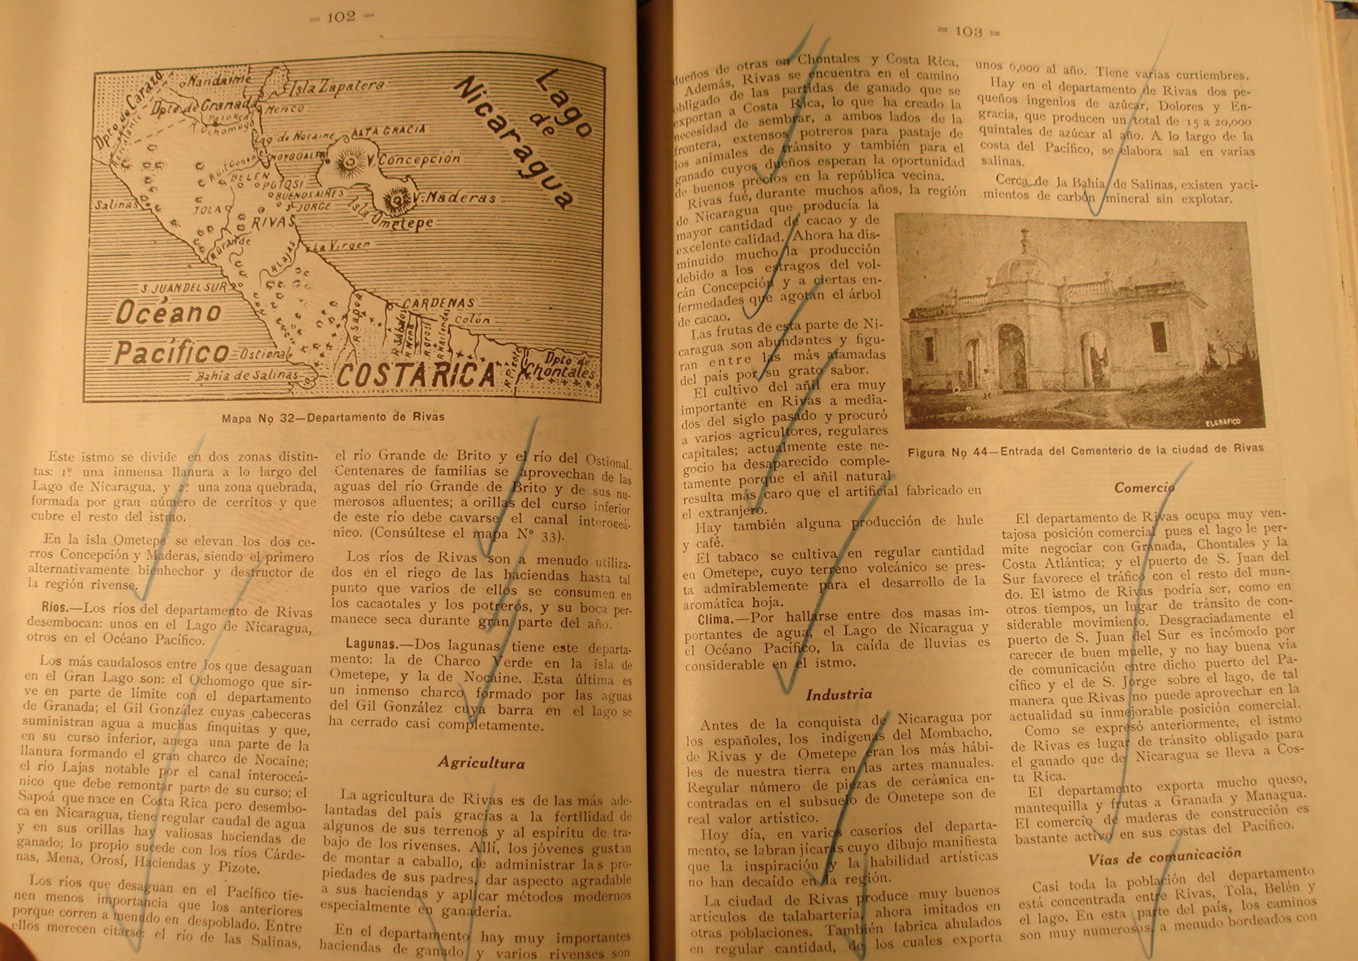 — 102 —
Lago de Nicaragua
Dpto de Carazo
Nandaime
Isla Zapatera
Dpto de Granada
Menco
R. Ochomogo
ALTA GRACIA
V. Concepción
MOYOGALPA
V. Maderas
Isla Ometepe
BELEN
POTOSI
BUENOS AIRES
S. JORGE
Salinas
TOLA
RIVAS
La Virgen
R. Grande
R. Lajas
S. JUAN DEL SUR
Océano
Pacífico
Ostional
Bahía de Salinas
R. Sapoá
CÁRDENAS
Colón
R. Mena
R. Orosí
COSTA RICA
Dpto de Chontales
Mapa No 32—Departamento de Rivas
Este istmo se divide en dos zonas distin-
tas: 1ª una inmensa llanura a lo largo del
Lago de Nicaragua, y 2ª una zona quebrada,
formada por gran número de cerritos y que
cubre el resto del istmo.
En la isla Ometepe se elevan los dos ce-
rros Concepción y Maderas, siendo el primero
alternativamente bienhechor y destructor de
la región rivense.
Ríos.—Los ríos del departamento de Rivas
desembocan: unos en el Lago de Nicaragua,
otros en el Océano Pacífico.
Los más caudalosos entre los que desaguan
en el Gran Lago son: el Ochomogo que sir-
ve en parte de límite con el departamento
de Granada; el Gil González cuyas cabeceras
suministran agua a muchas finquitas y que,
en su curso inferior, anega una parte de la
llanura formando el gran charco de Nocaine;
el río Lajas notable por el canal interoceá-
nico que debe remontar parte de su curso; el
Sapoá que nace en Costa Rica pero desembo-
ca en Nicaragua, tiene regular caudal de agua
y en sus orillas hay valiosas haciendas de
ganado; lo propio sucede con los ríos Cárde-
nas, Mena, Orosí, Haciendas y Pizote.
Los ríos que desaguan en el Pacífico tie-
nen menos importancia que los anteriores
porque corren a menudo en despoblado. Entre
ellos merecen citarse: el río de las Salinas,
el río Grande de Brito y el río del Ostional.
Centenares de familias se aprovechan de las
aguas del río Grande de Brito y de sus nu-
merosos afluentes; a orillas del curso inferior
de este río debe cavarse el canal interoceá-
nico. (Consúltese el mapa N° 33).
Los ríos de Rivas son a menudo utiliza-
dos en el riego de las haciendas hasta tal
punto que varios de ellos se consumen en
los cacaotales y los potreros, y su boca per-
manece seca durante gran parte del año.
Lagunas.—Dos lagunas tiene este departa-
mento: la de Charco Verde en la isla de
Ometepe, y la de Nocaine. Esta última es
un inmenso charco formado por las aguas
del Gil González cuya barra en el lago se
ha cerrado casi completamente.
Agricultura
La agricultura de Rivas es de las más ade-
lantadas del país gracias a la fertilidad de
algunos de sus terrenos y al espíritu de tra-
bajo de los rivenses. Allí, los jóvenes gustan
de montar a caballo, de administrar las pro-
piedades de sus padres, dar aspecto agradable
a sus haciendas y aplicar métodos modernos
especialmente en ganadería.
En el departamento hay muy importantes
haciendas de ganado y varios rivenses son
— 103 —
dueños de otras en Chontales y Costa Rica.
Además, Rivas se encuentra en el camino
obligado de las partidas de ganado que se
exportan a Costa Rica, lo que ha creado la
necesidad de sembrar, a ambos lados de la
frontera, extensos potreros para pastaje de
los animales de tránsito y también para el
ganado cuyos dueños esperan la oportunidad
de buenos precios en la república vecina.
Rivas fué, durante muchos años, la región
de Nicaragua que producía la
mayor cantidad de cacao y de
excelente calidad. Ahora ha dis-
minuido mucho la producción
debido a los estragos del vol-
cán Concepción y a ciertas en-
fermedades que agotan el árbol
de cacao.
Las frutas de esta parte de Ni-
caragua son abundantes y figu-
ran entre las más afamadas
del país por su grato sabor.
El cultivo del añil era muy
importante en Rivas a media-
dos del siglo pasado y procuró
a varios agricultores, regulares
capitales; actualmente este ne-
gocio ha desaparecido comple-
tamente porque el añil natural
resulta más caro que el artificial fabricado en
el extranjero.
Hay también alguna producción de hule
y café.
El tabaco se cultiva en regular cantidad
en Ometepe, cuyo terreno volcánico se pres-
ta admirablemente para el desarrollo de la
aromática hoja.
Clima.—Por hallarse entre dos masas im-
portantes de agua, el Lago de Nicaragua y
el Océano Pacífico, la caída de lluvias es
considerable en el istmo.
Industria
Antes de la conquista de Nicaragua por
los españoles, los indígenas del Mombacho,
de Rivas y de Ometepe eran los más hábi-
les de nuestra tierra en las artes manuales.
Regular número de piezas de cerámica en-
contradas en el subsuelo de Ometepe son de
real valor artístico.
Hoy día, en varios caseríos del departa-
mento, se labran jícaras cuyo dibujo manifiesta
que la inspiración y la habilidad artísticas
no han decaído en la región.
La ciudad de Rivas produce muy buenos
artículos de talabartería, ahora imitados en
otras poblaciones. También fabrica ahulados
en regular cantidad, de los cuales exporta
unos 6,000 al año. Tiene varias curtiembres.
Hay en el departamento de Rivas dos pe-
queños ingenios de azúcar, Dolores y En-
gracia, que producen un total de 15 a 20,000
quintales de azúcar al año. A lo largo de la
costa del Pacífico, se elabora sal en varias
salinas.
Cerca de la Bahía de Salinas, existen yaci-
mientos de carbón mineral sin explotar.
Figura No 44—Entrada del Cementerio de la ciudad de Rivas
Comercio
El departamento de Rivas ocupa muy ven-
tajosa posición comercial pues el lago le per-
mite negociar con Granada, Chontales y la
Costa Atlántica; y el puerto de S. Juan del
Sur favorece el tráfico con el resto del mun-
do. El istmo de Rivas podría ser, como en
otros tiempos, un lugar de tránsito de con-
siderable movimiento. Desgraciadamente el
puerto de S. Juan del Sur es incómodo por
carecer de buen muelle, y no hay buena vía
de comunicación entre dicho puerto del Pa-
cífico y el de S. Jorge sobre el lago, de tal
manera que Rivas no puede aprovechar en la
actualidad su inmejorable posición comercial.
Como se expresó anteriormente, el istmo
de Rivas es lugar de tránsito obligado para
el ganado que de Nicaragua se lleva a Cos-
ta Rica.
El departamento exporta mucho queso,
mantequilla y frutas a Granada y Managua.
El comercio de maderas de construcción es
bastante activo en sus costas del Pacífico.
Vías de comunicación
Casi toda la población del departamento
está concentrada entre Rivas, Tola, Belén y
el lago. En esta parte del país, los caminos
son muy numerosos, a menudo bordeados con